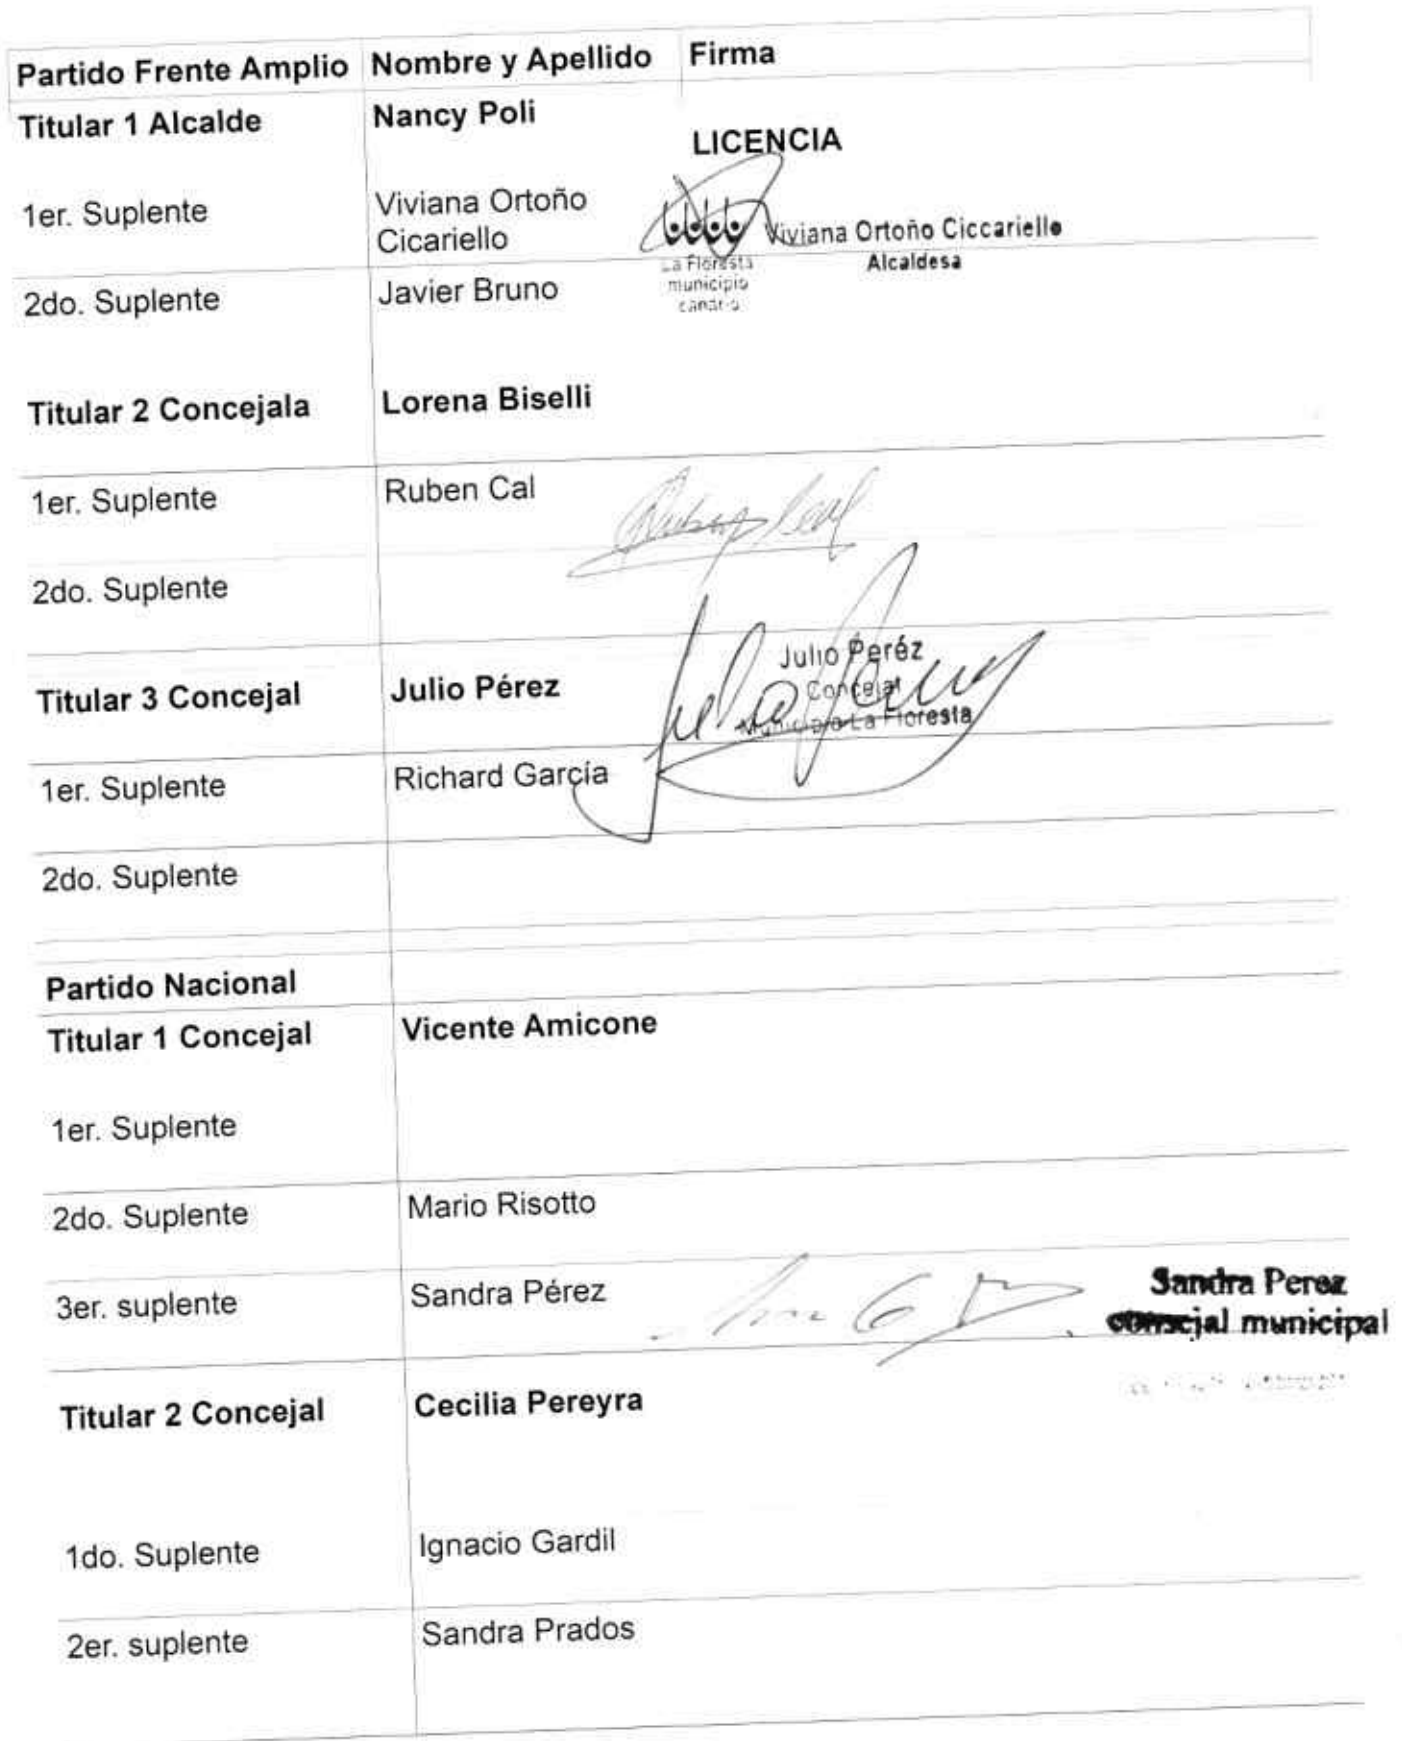 Partido Frente Amplio Nombre y Apellido Firma
Titular 1 Alcalde Nancy Poli
LICENCIA
1er. Suplente Viviana Ortoño
Cicariello
Viviana Ortoño Ciccariello
Alcaldesa
La Floresta
municipio
canario
2do. Suplente Javier Bruno
Titular 2 Concejala Lorena Biselli
1er. Suplente Ruben Cal
Ruben Cal
2do. Suplente
Titular 3 Concejal Julio Pérez
Julio Peréz
Concejal
Municipio La Floresta
Julio Perez
1er. Suplente Richard García
2do. Suplente
Partido Nacional
Titular 1 Concejal Vicente Amicone
1er. Suplente
2do. Suplente Mario Risotto
3er. suplente Sandra Pérez
Sandra Perez
consejal municipal
Titular 2 Concejal Cecilia Pereyra
1do. Suplente Ignacio Gardil
2er. suplente Sandra Prados